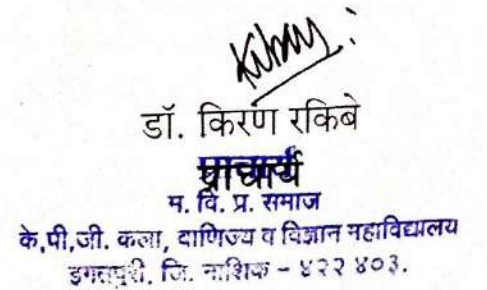 डॉ. किरण रकिबे
प्राचार्य
म. वि. प्र. समाज
के.पी.जी. कला, वाणिज्य व विज्ञान महाविद्यालय
इगतपुरी, जि. नाशिक – ४२२ ४०३.